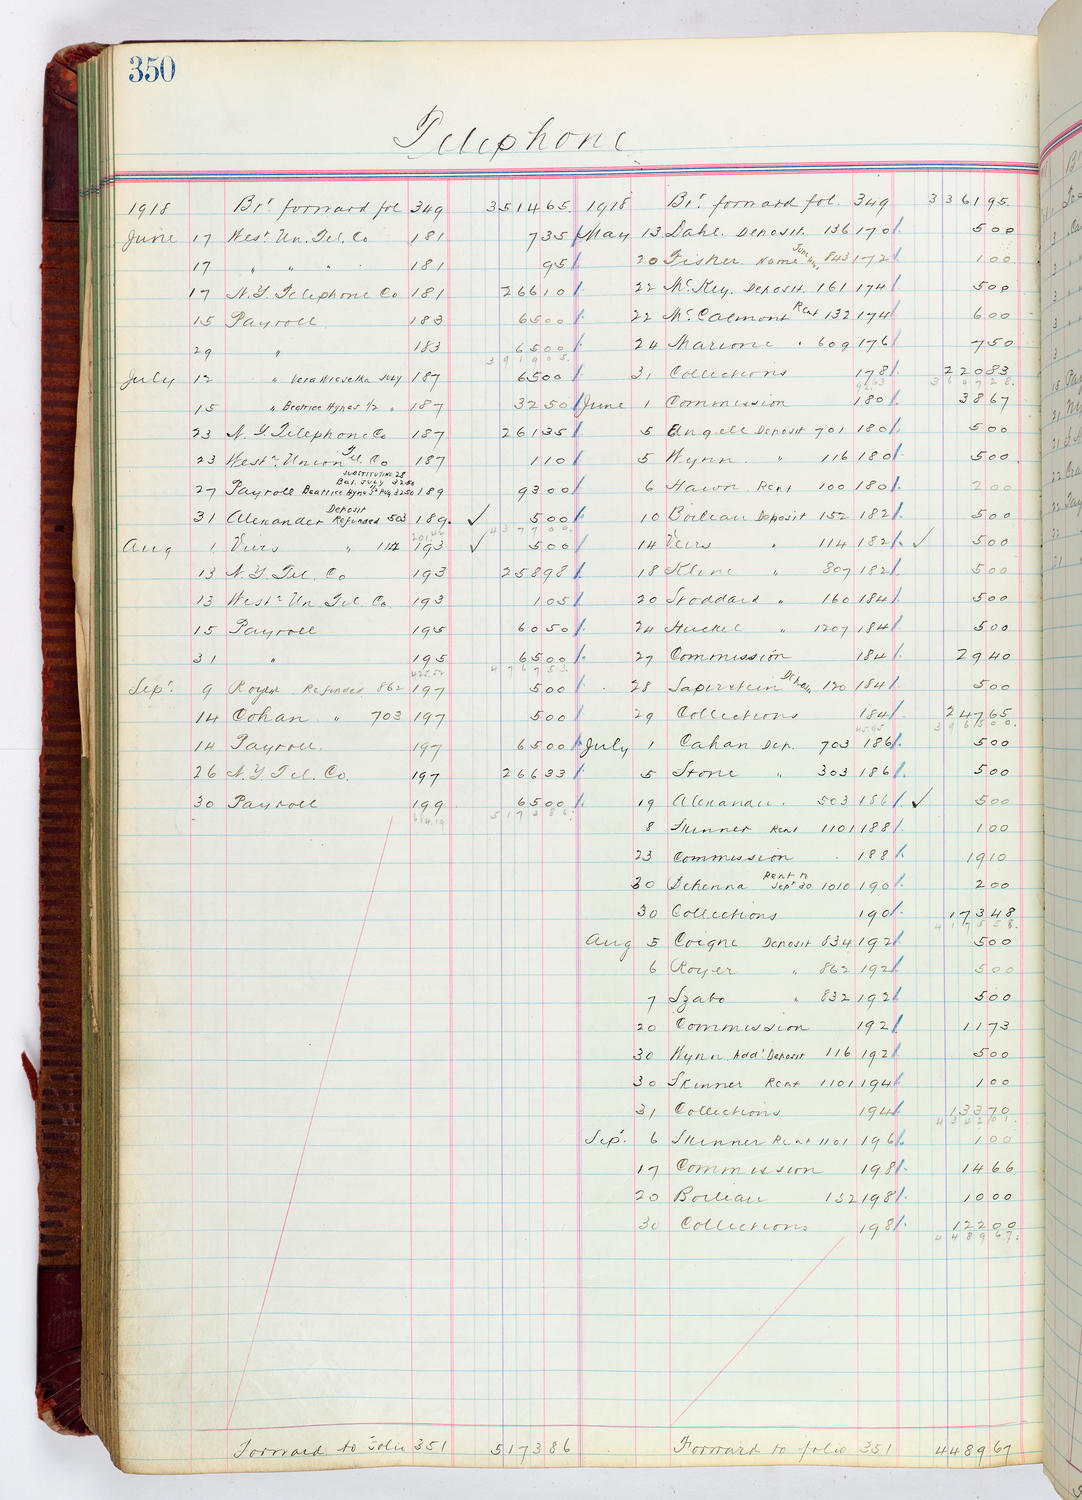 350
Telephone
1918 Bt. forward fol 349 351465
June 17 West. Un. Tel. Co 181 735
17 " " " 181 95
17 N.Y. Telephone Co 181 26610
15 Payroll 183 6500
29 " 183 6500
391905
July 12 " Vera Wieselka July 187 6500
15 " Beatrice Hynes 1/2 " 187 3250
23 N.Y. Telephone Co 187 26135
23 West. Union Tel. Co 187 110
Substituting 28
Bal. July 3250
27 Payroll Beatrice Hynes 3250 189 9300
31 Alexander Deposit Refunded 503 189 ✓ 500
437700
Aug 1 Viers " 112 193 ✓ 500
13 N.Y. Tel. Co 193 25898
13 West. Un Tel Co. 193 105
15 Payroll 195 6050
31 " 195 6500
476753
Sept. 9 Royer Refunded 862 197 500
14 Cohan " 703 197 500
14 Payroll 197 6500
26 N.Y. Tel. Co. 197 26633
30 Payroll 199 6500
517386
Forward to folio 351 517386
1918 Bt. forward fol. 349 336195
May 13 Dahl Deposit 136 170 500
20 Fisher Name 843 172 100
22 McKey Deposit 161 174 500
22 McCalmont Rent 132 174 600
24 Marione " 609 176 750
31 Collections 178 22083
360728
June 1 Commission 180 3867
5 Angell Deposit 701 180 500
5 Wynn " 116 180 500
6 Hawn Rent 100 180 200
10 Boileau Deposit 152 182 500
14 Veirs " 114 182 ✓ 500
18 Kline " 807 182 500
20 Stoddard " 160 184 500
24 Huckel " 1207 184 500
27 Commission 184 2940
28 Saperstein 120 184 500
29 Collections 184 24765
396500
July 1 Cahan Dep. 703 186 500
5 Stone " 303 186 500
19 Alexander 503 186 ✓ 500
8 Skinner Rent 1101 188 100
23 Commission 188 1910
30 Dehenna Rent to Sept 30 1010 190 200
30 Collections 190 17348
417558
Aug 5 Coigne Deposit 834 192 500
6 Royer " 862 192 500
7 Szabo " 832 192 500
20 Commission 192 1173
30 Wynn Add' Deposit 116 192 500
30 Skinner Rent 1101 194 100
31 Collections 194 13370
434201
Sept. 6 Skinner Rent 1101 196 100
17 Commission 198 1466
20 Boileau 132 198 1000
30 Collections 198 12200
448967
Forward to folio 351 448967